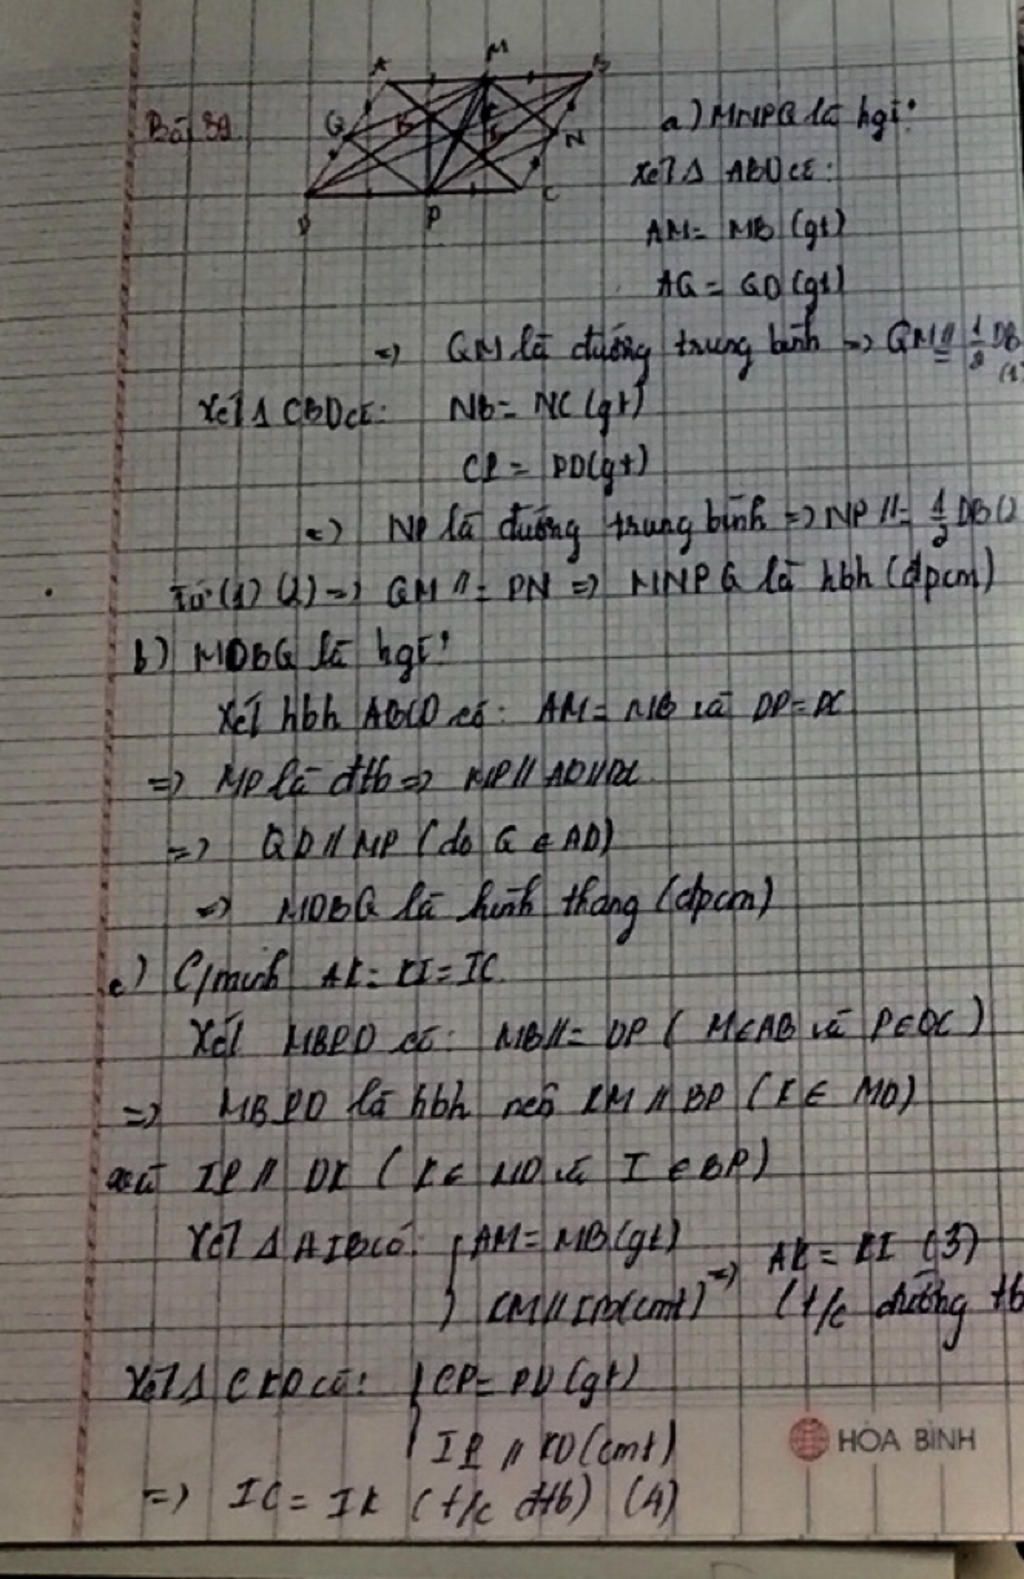 A M B
Bài 39 Q K E I N
D P C
a) MNPQ là hgì?
Xét Δ ABD có:
AM = MB (gt)
AQ = QD (gt)
=> QM là đường trung bình => QM // = 1/2 DB (1)
Xét Δ CBD có: NB = NC (gt)
CP = PD (gt)
=> NP là đường trung bình => NP // = 1/2 DB (2)
Từ (1) (2) => QM // = PN => MNPQ là hbh (đpcm)
b) MDBQ là hgì?
Xét hbh ABCD có: AM = MB và DP = PC
=> MP là đtb => MP // AD //
=> QD // MP (do Q ∈ AD)
=> MDBQ là hình thang (đpcm)
c) C/minh AK = KI = IC
Xét MBPD có: MB // = DP ( M ∈ AB và P ∈ DC )
=> MBPD là hbh nên KM // BP ( K ∈ MD)
và IP // DK ( K ∈ MD và I ∈ BP)
Xét Δ AIB có: { AM = MB (gt) => AK = KI (3)
KM // IB (cmt) (t/c đường tb
Xét Δ CKD có: { CP = PD (gt)
IP // KD (cmt)
=> IC = IK (t/c đtb) (4)
HÒA BÌNH